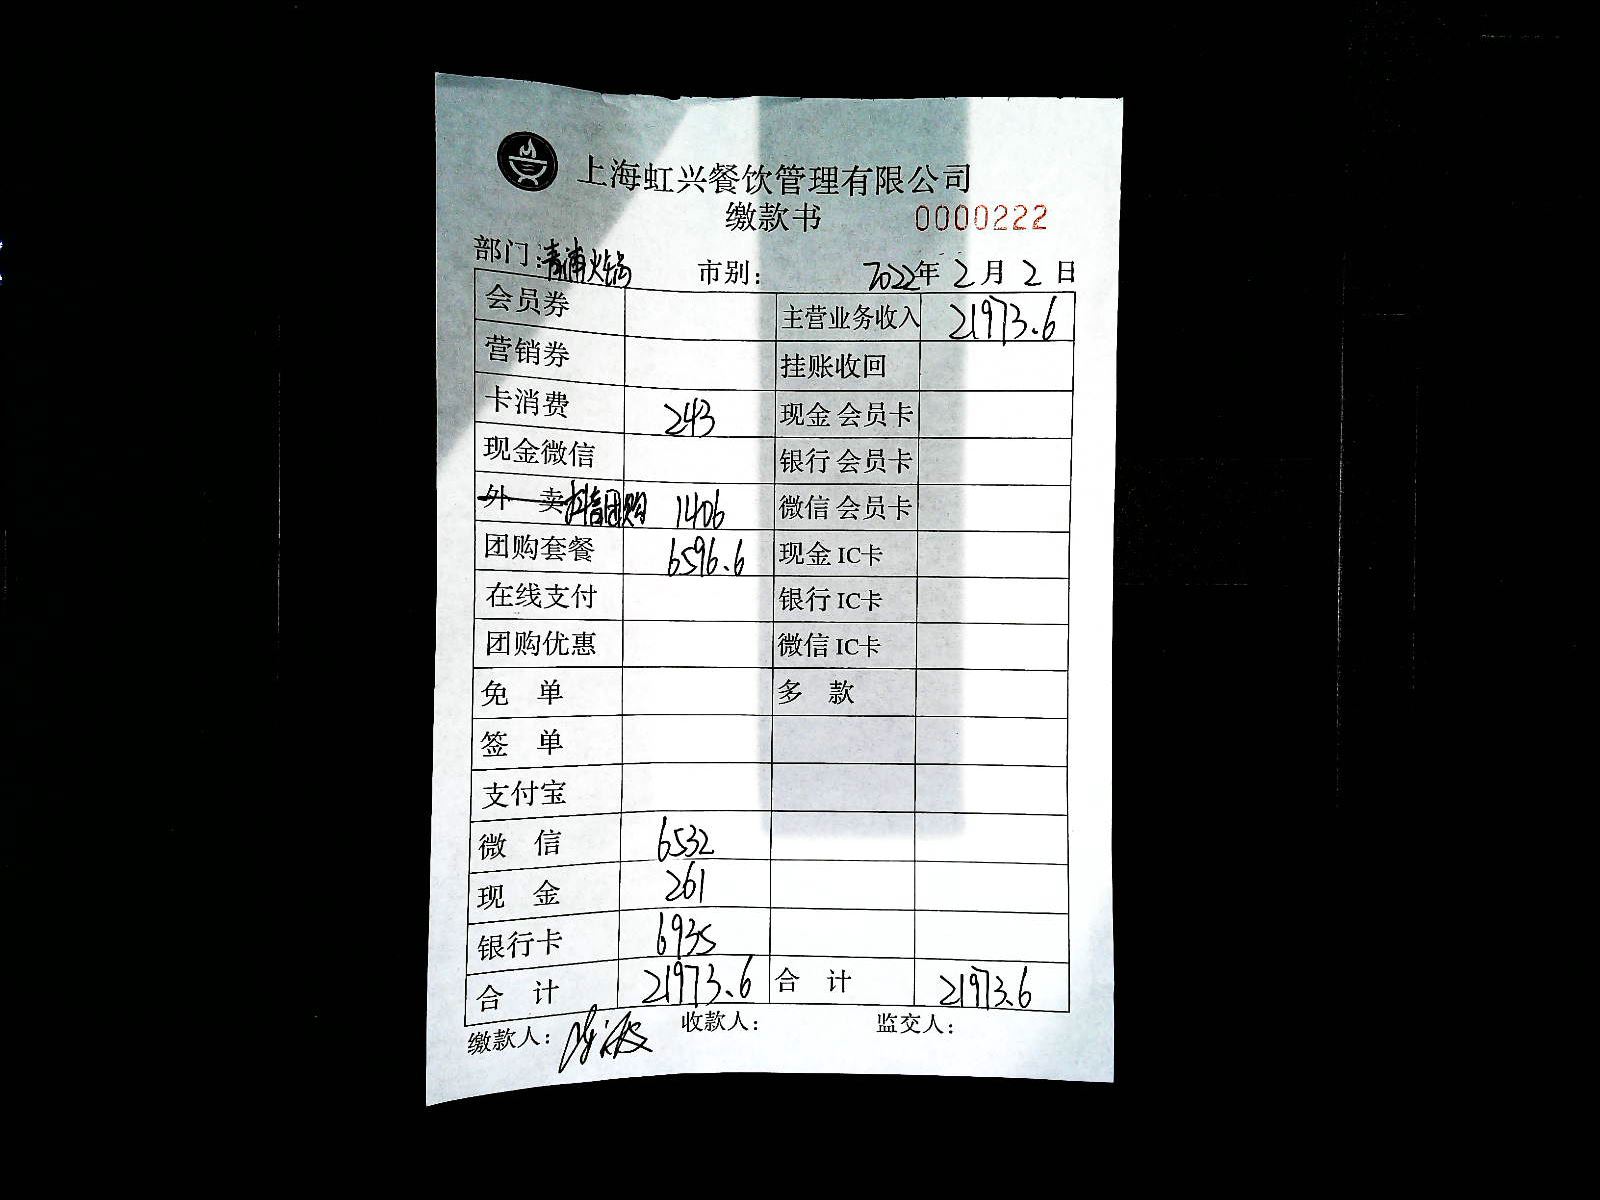 上海虹兴餐饮管理有限公司
缴款书 0000222
部门:青浦火锅 市别: 2022年2月2日
会员券 主营业务收入 21973.6
营销券 挂账收回
卡消费 243 现金 会员卡
现金微信 银行 会员卡
外 卖 抖音团购 1406 微信 会员卡
团购套餐 6596.6 现金 IC卡
在线支付 银行 IC卡
团购优惠 微信 IC卡
免 单 多 款
签 单
支付宝
微 信 6532
现 金 261
银行卡 6935
合 计 21973.6 合 计 21973.6
缴款人: 收款人: 监交人: